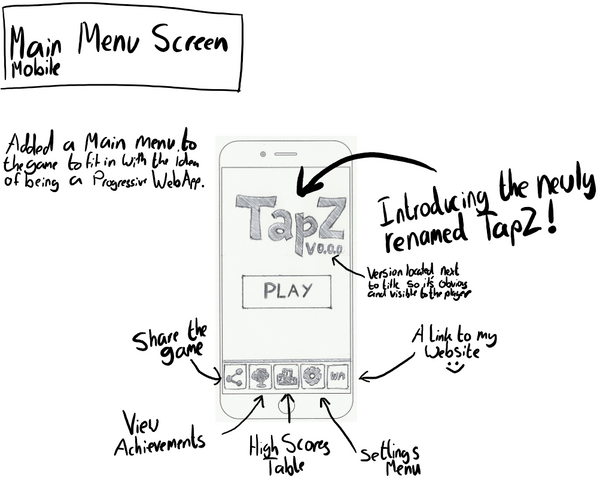 Main Menu Screen
Mobile
Added a Main menu to
the game to fit in with the idea
of being a Progressive WebApp.
TapZ
V0.0.0
PLAY
Introducing the newly
renamed TapZ!
Version located next
to title so its obvious
and visible to the player
Share the
game
A link to my
Website
View
Achievements
High Scores
Table
Settings
Menu